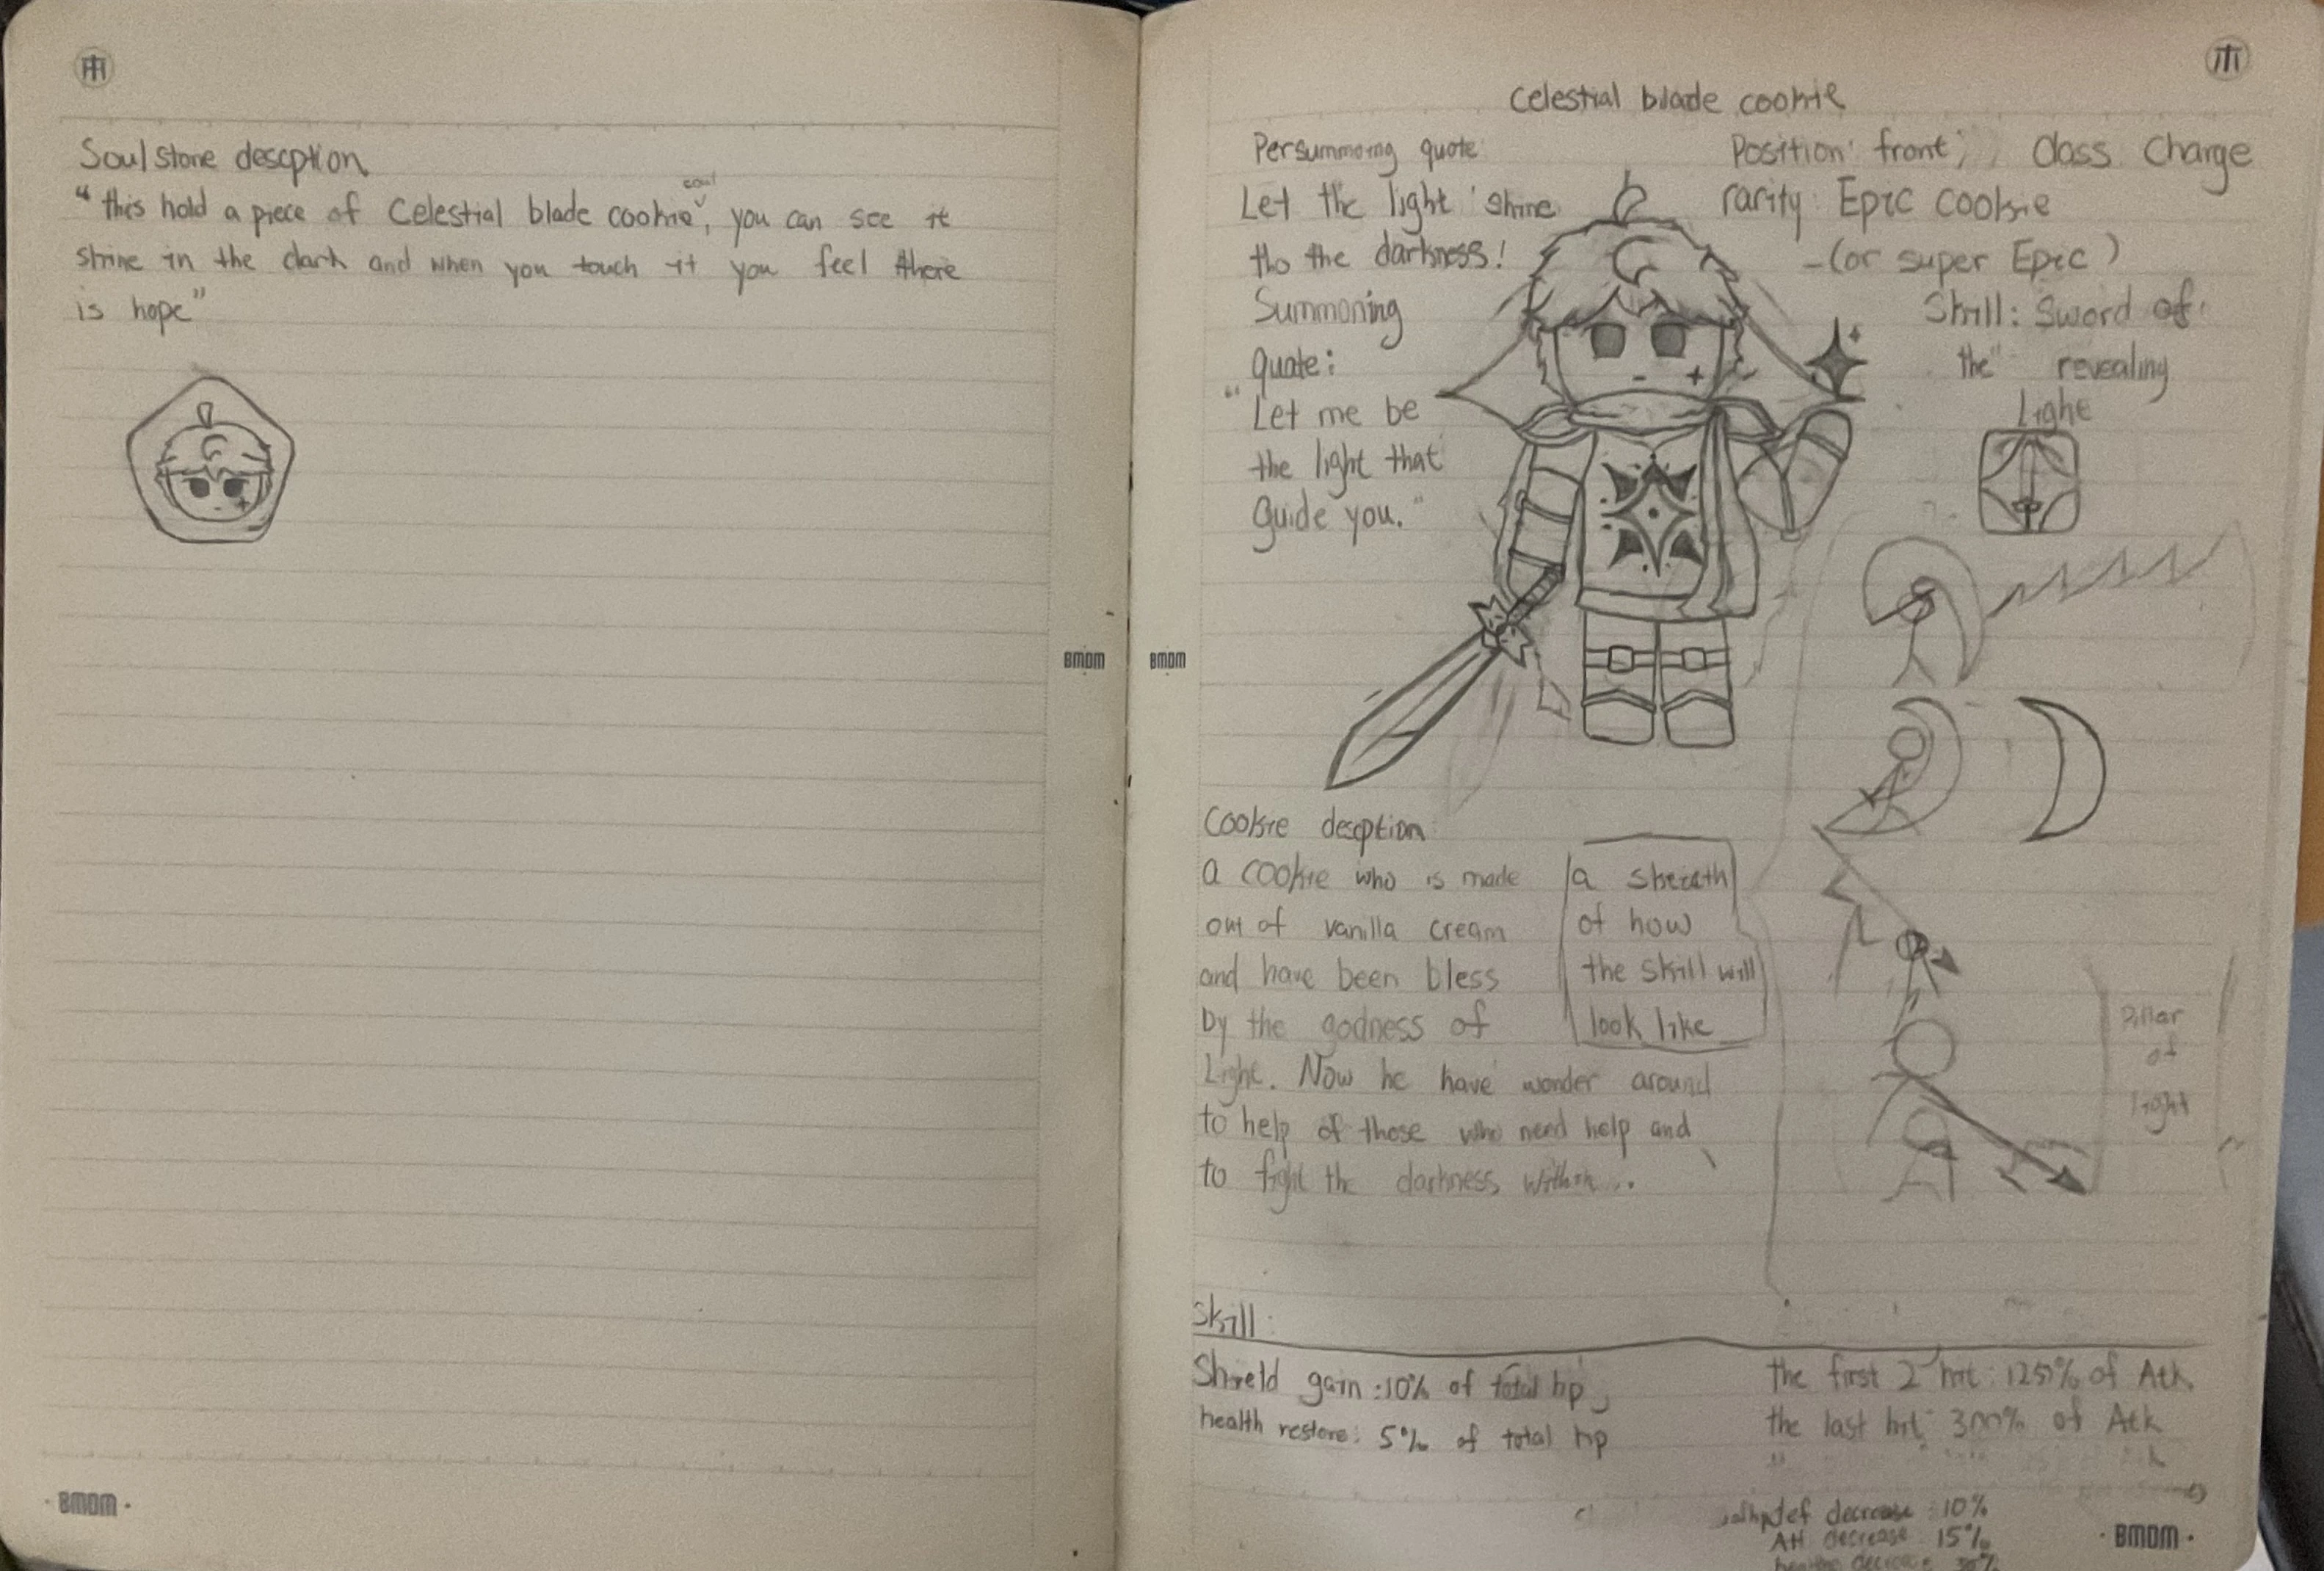 Soulstone descption
"this hold a piece of Celestial blade cookie soul, you can see it
shine in the dark and when you touch it you feel there
is hope"
BMDM
BMDM
Celestial blade cookie
Persummoing quote
Let the light shine
tho the darkness!
Summoning
quote:
"Let me be
the light that
Guide you."
Position: front; Class Charge
rarity: Epic cookie
-(or super Epic)
Skill: Sword of
the revealing
Light
BMDM
Cookie descption
a cookie who is made
out of vanilla cream
and have been bless
by the godness of
Light. Now he have wonder around
to help of those who need help and
to fight the darkness within...
a skecth
of how
the skill will
look like
Pillar
of
light
Skill:
Shield gain: 10% of total hp
health restore: 5% of total hp
the first 2 hit: 125% of Atk
the last hit: 300% of Atk
def decrease: 10%
Atk decrease 15%
decrease 30%
BMDM